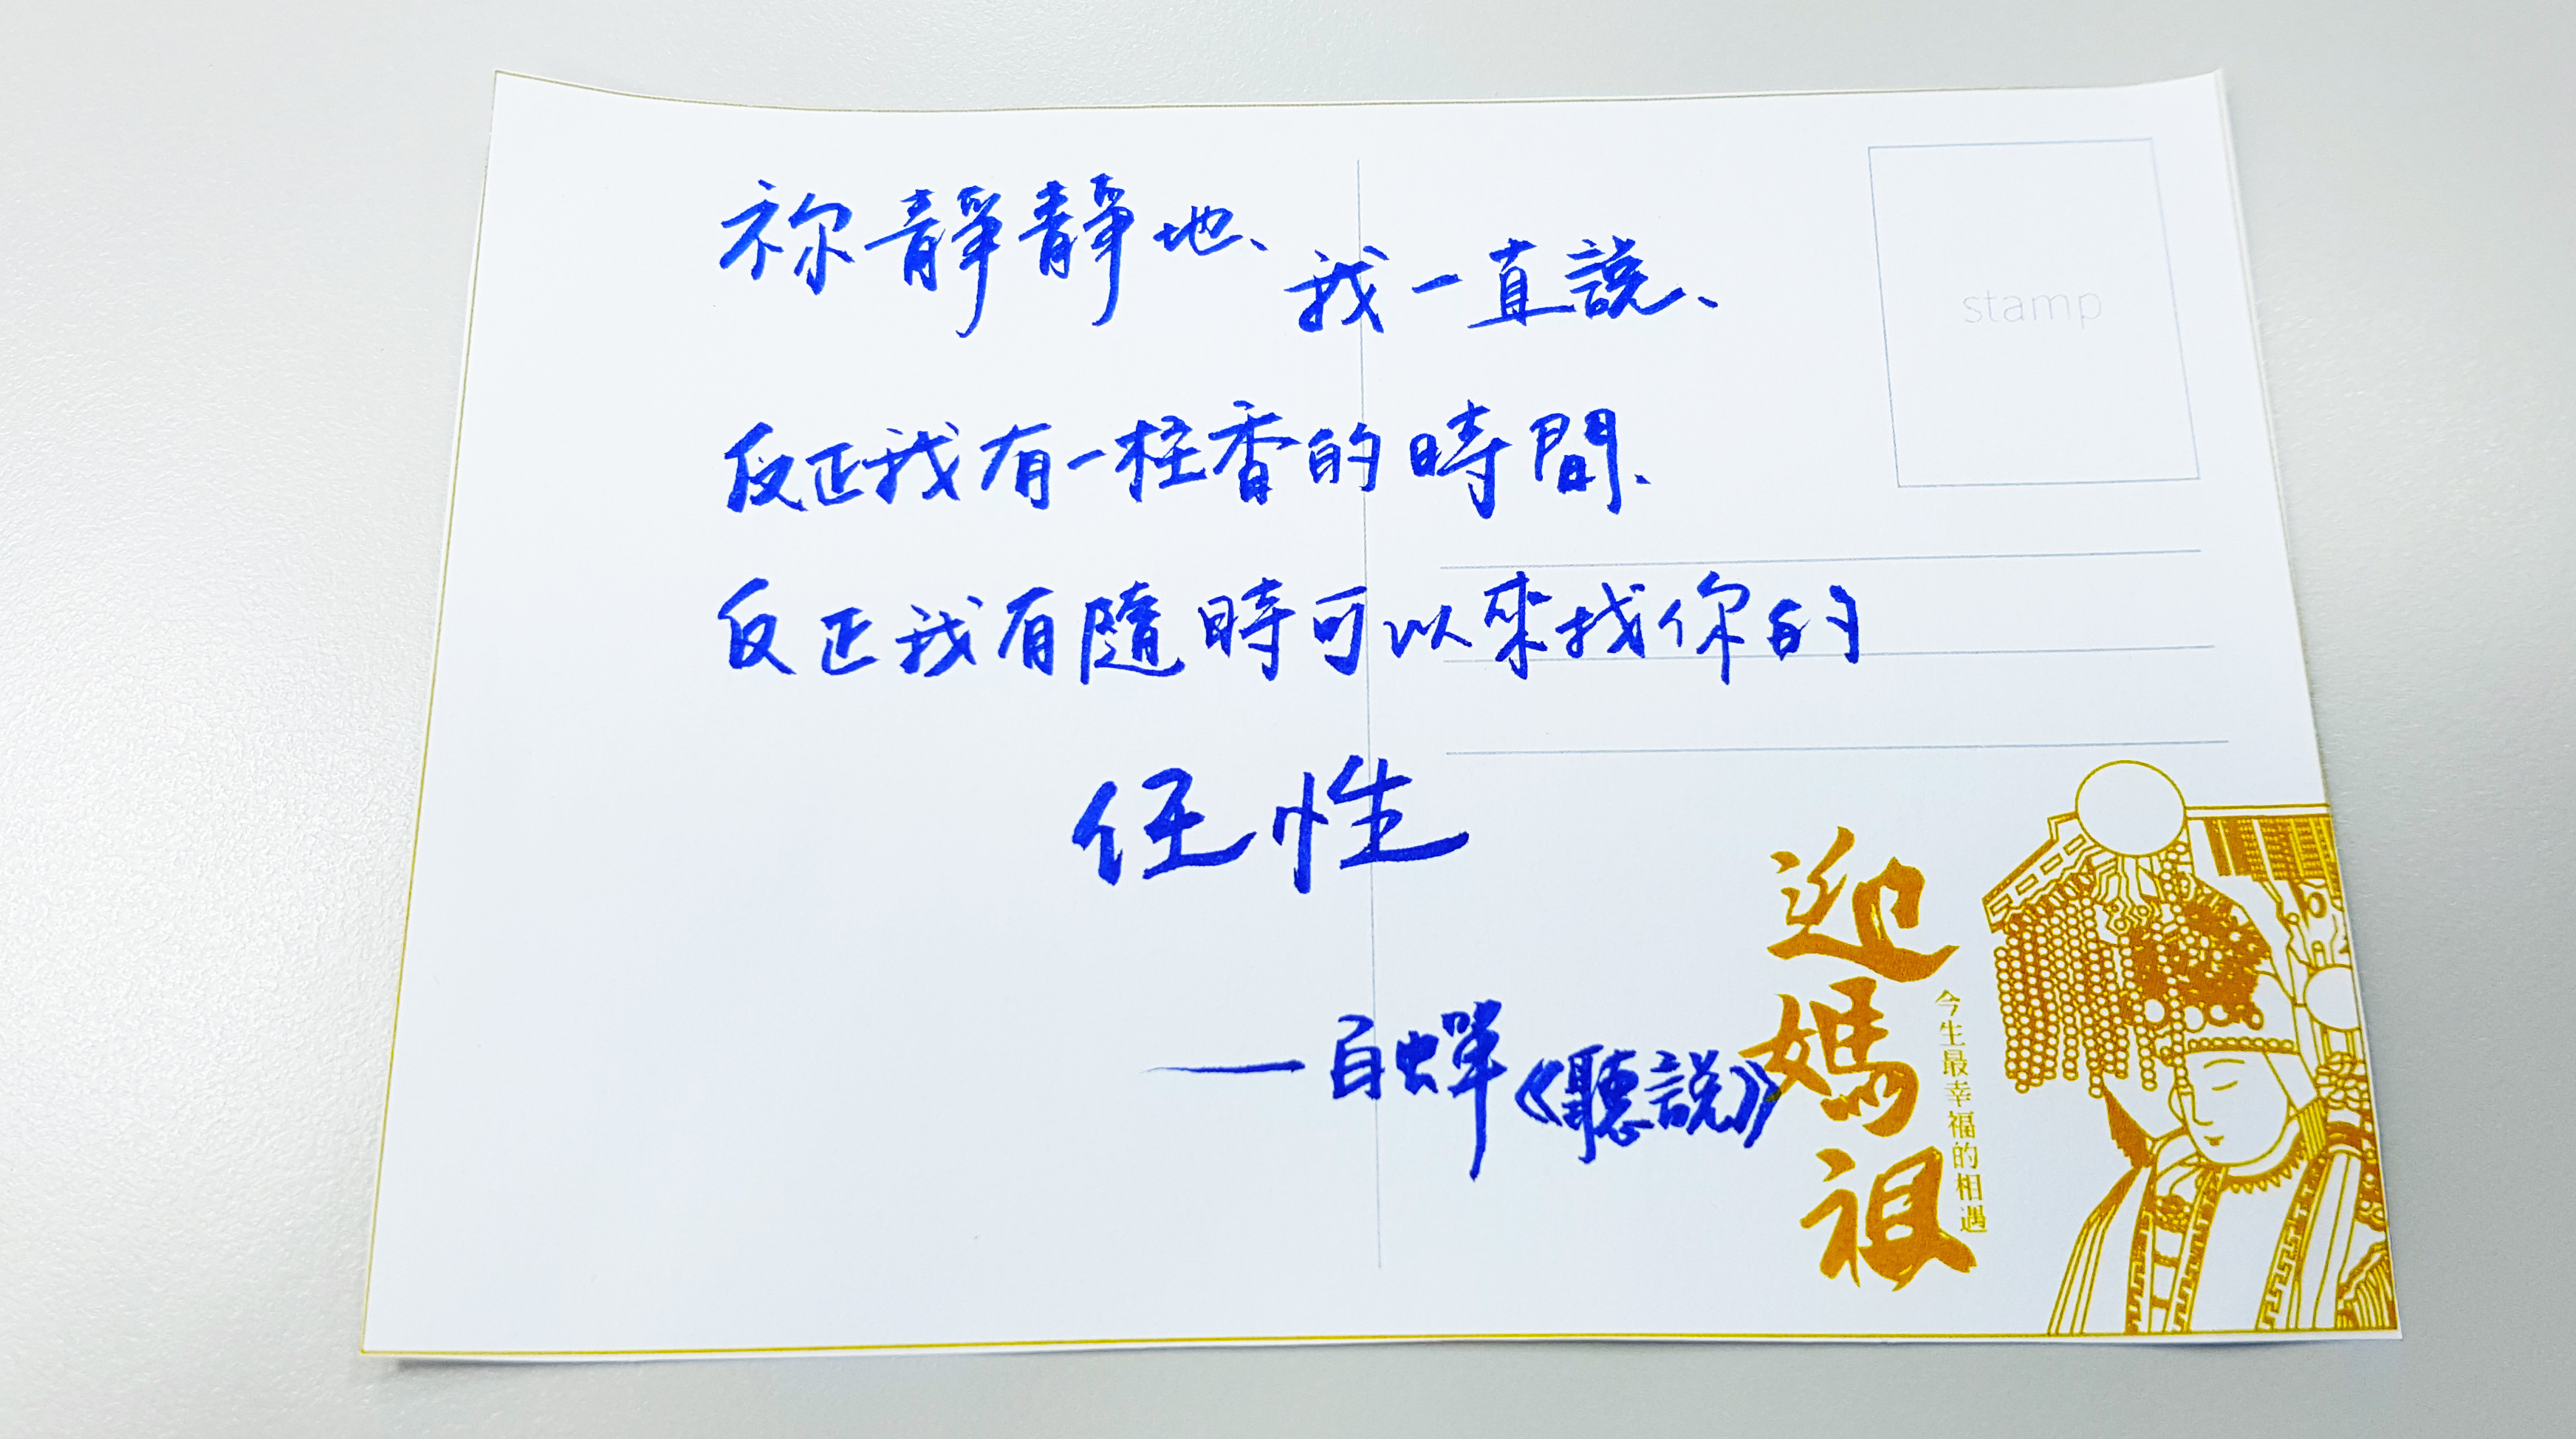 祢靜靜地、我一直說、
反正我有一柱香的時間、
反正我有隨時可以來找你的
任性
——百蟬《聽說》
stamp
迎媽祖
今生最幸福的相遇